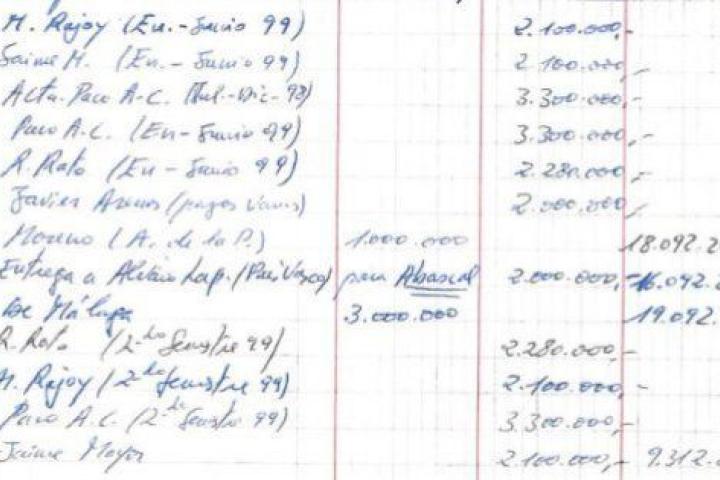 M. Rajoy (En.-Junio 99) 2.100.000,-
Jaime M. (En.-Junio 99) 2.100.000,-
Acta. Paco A-C. (Jul.-Dic-98) 3.300.000,-
Paco A.C. (En-Junio 99) 3.300.000,-
R. Rato (En-Junio 99) 2.280.000,-
Javier Arenas (pagos varios) 2.000.000,-
Moreno (A. de la P.) 1.000.000 18.092.2
Entrega a (País Vasco) para Abascal 2.000.000,- 16.092.2
de Málaga 3.000.000 19.092.
R. Rato (2º Semestre 99) 2.280.000,-
M. Rajoy (2º Semestre 99) 2.100.000,-
Paco A.C. (2º Semestre 99) 3.300.000,-
Jaime Mayor 2.100.000,- 9.312.